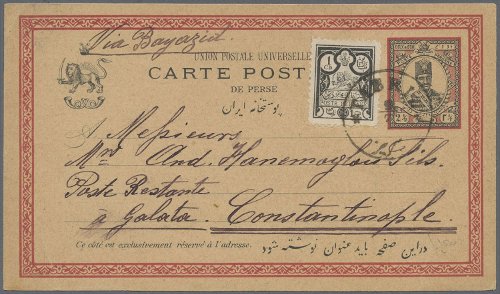 Via Bayazid
UNION POSTALE UNIVERSELLE
CARTE POST
DE PERSE
پوستخانه ایران
1
2½
A Messieurs
Mrs And. Hanemoglou Fils.
Poste Restante
a Galata. Constantinople.
Ce côté est exclusivement réservé à l'adresse.
دراین صفحه باید عنوان نوشته شود